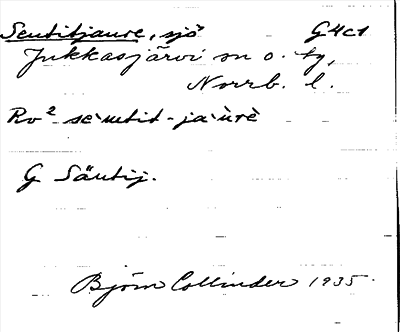 Seutitjaure, sjö G4c1
Jukkasjärvi sn o. tg,
Norrb. l.
Rv² se`utit-ja`ùrè
G Säutij.
Björn Collinder 1935.